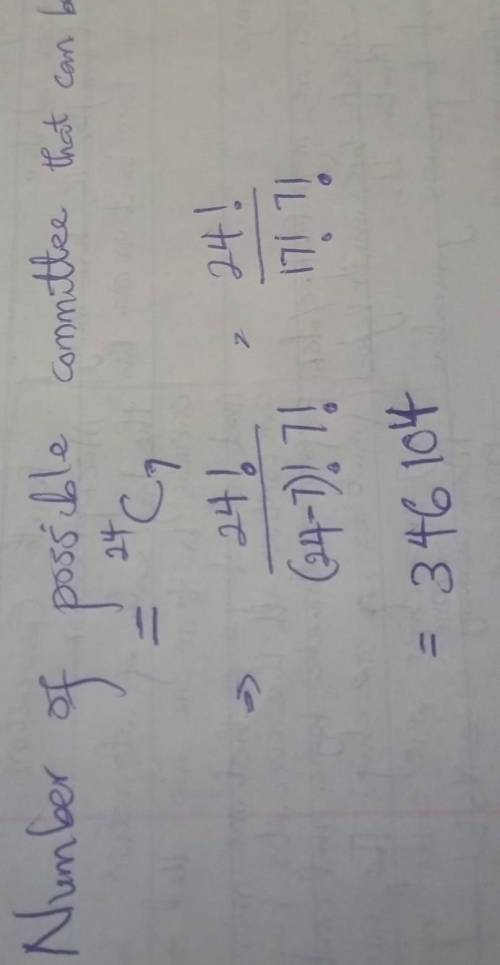 Number of possible committee that can b
= ²⁴C₇
⇒ 24! / (24-7)! 7! = 24! / 17! 7!
= 346 104